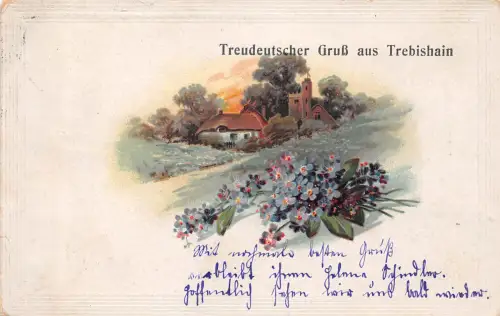 Treudeutscher Gruß aus Trebishain
Mit nochmals besten Gruß
verbleibt ihnen Helena Schindler.
Hoffentlich sehen wir uns bald wieder.